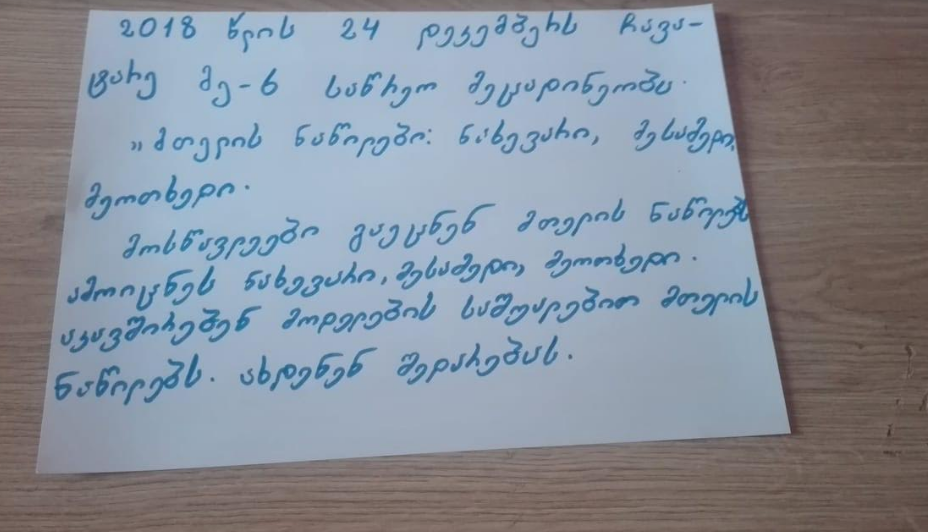 2018 წლის 24 დეკემბერს ჩავა-
ტარე მე-6 საწრეო მეცადინეობა.
„მთელის ნაწილები: ნახევარი, მესამედი,
მეოთხედი.
მოსწავლეები გაეცნენ მთელის ნაწილებს
ამოიცნეს ნახევარი, მესამედი, მეოთხედი.
აკავშირებენ მოდელების საშუალებით მთელის
ნაწილებს. ახდენენ შედარებას.